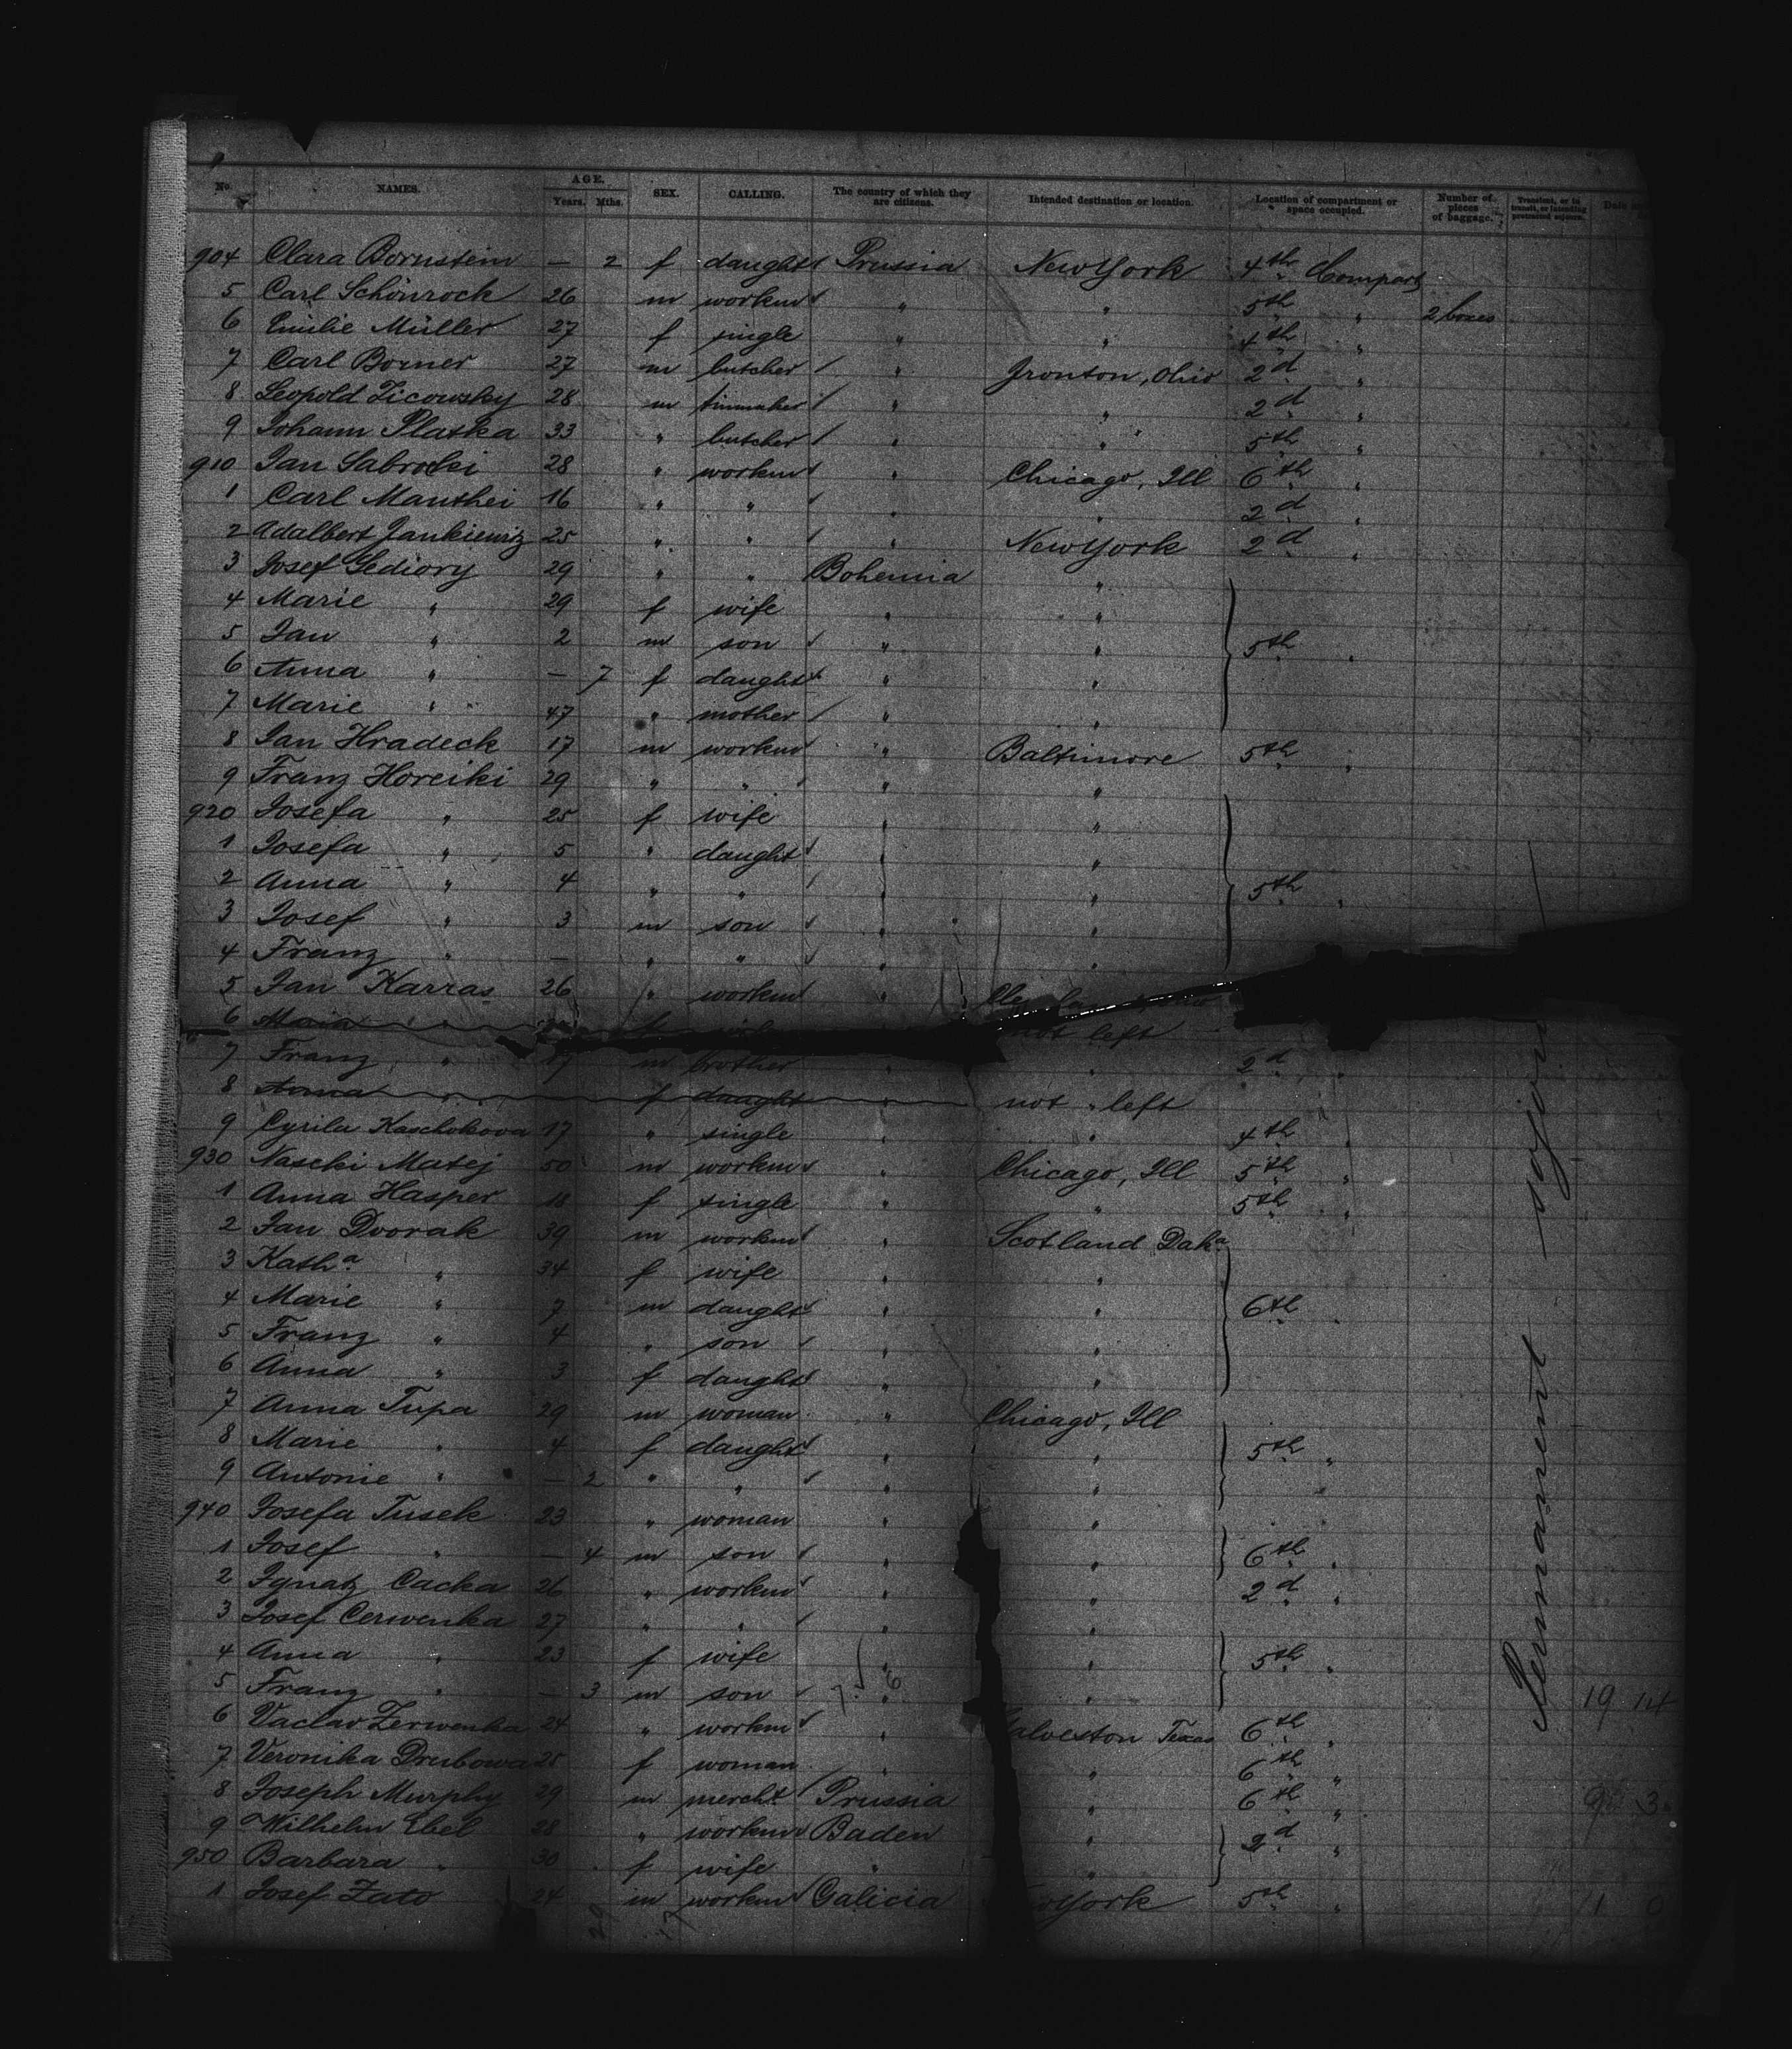 No. NAMES. AGE. Years. Mths. SEX. CALLING. The country of which they are citizens. Intended destination or location. Location of compartment or space occupied. Number of pieces of baggage. Transient, or in transit, or intending protracted sojourn. Date
904 Clara Bornstein — 2 f daught Prussia New York 4th Compart
5 Carl Schönrock 26 m workm " " 5th " 2 boxes
6 Emilie Müller 27 f single " " 4th "
7 Carl Borner 27 m butcher " Jronton, Ohio 2d "
8 Leopold Zicowsky 28 m tinmaker " " 2d "
9 Johann Plaska 33 " butcher " " 5th "
910 Jan Sabrocki 28 " workm " Chicago, Ill 6th "
1 Carl Manthei 16 " " " " 2d "
2 Adalbert Jankiewiz 25 " " " New York 2d "
3 Josef Gediory 29 " " Bohemia "
4 Marie " 29 f wife " "
5 Jan " 2 m son " " 5th "
6 Anna " — 7 f daught " "
7 Marie " 47 " mother " "
8 Jan Hradeck 17 m workm " Baltimore 5th "
9 Franz Horeiki 29 " " " "
920 Josefa " 25 f wife " "
1 Josefa " 5 " daught " "
2 Anna " 4 " " " " 5th "
3 Josef " 3 m son " "
4 Franz " — " " " "
5 Jan Karras 26 " workm "
6 f left
7 Franz " m brother " " 2d "
8 Anna " f daught " not left
9 Cyrila Kaschokova 17 " single " " 4th "
930 Naseki Matej 50 m workm " Chicago, Ill 5th "
1 Anna Hasper 18 f single " " 5th "
2 Jan Dvorak 39 m workm " Scotland Daka
3 Katha " 34 f wife " "
4 Marie " 7 m daught " " 6th "
5 Franz " 4 " son " "
6 Anna " 3 f daught " "
7 Anna Tupa 29 m woman " Chicago, Ill
8 Marie " 4 f daught " " 5th "
9 Antonie " — 2 " " " "
940 Josefa Tusek 23 " woman " "
1 Josef " — 4 m son " " 6th "
2 Jgnatz Cacka 26 " workm " " 2d "
3 Josef Cerwenka 27 " " " "
4 Anna " 23 f wife " " 5th "
5 Franz " — 3 m son " " 19 14
6 Vaclav Zerwenka 24 " workm " alveston Texas 6th "
7 Veronika Drubowa 25 f woman " " 6th "
8 Joseph Murphy 29 m mercht Prussia " 6th "
9 Wilhelm Ebel 28 " workm Baden " 2d "
950 Barbara " 30 f wife " "
1 Josef Zato 24 m workm Galicia York 5th "
Permanent sojour